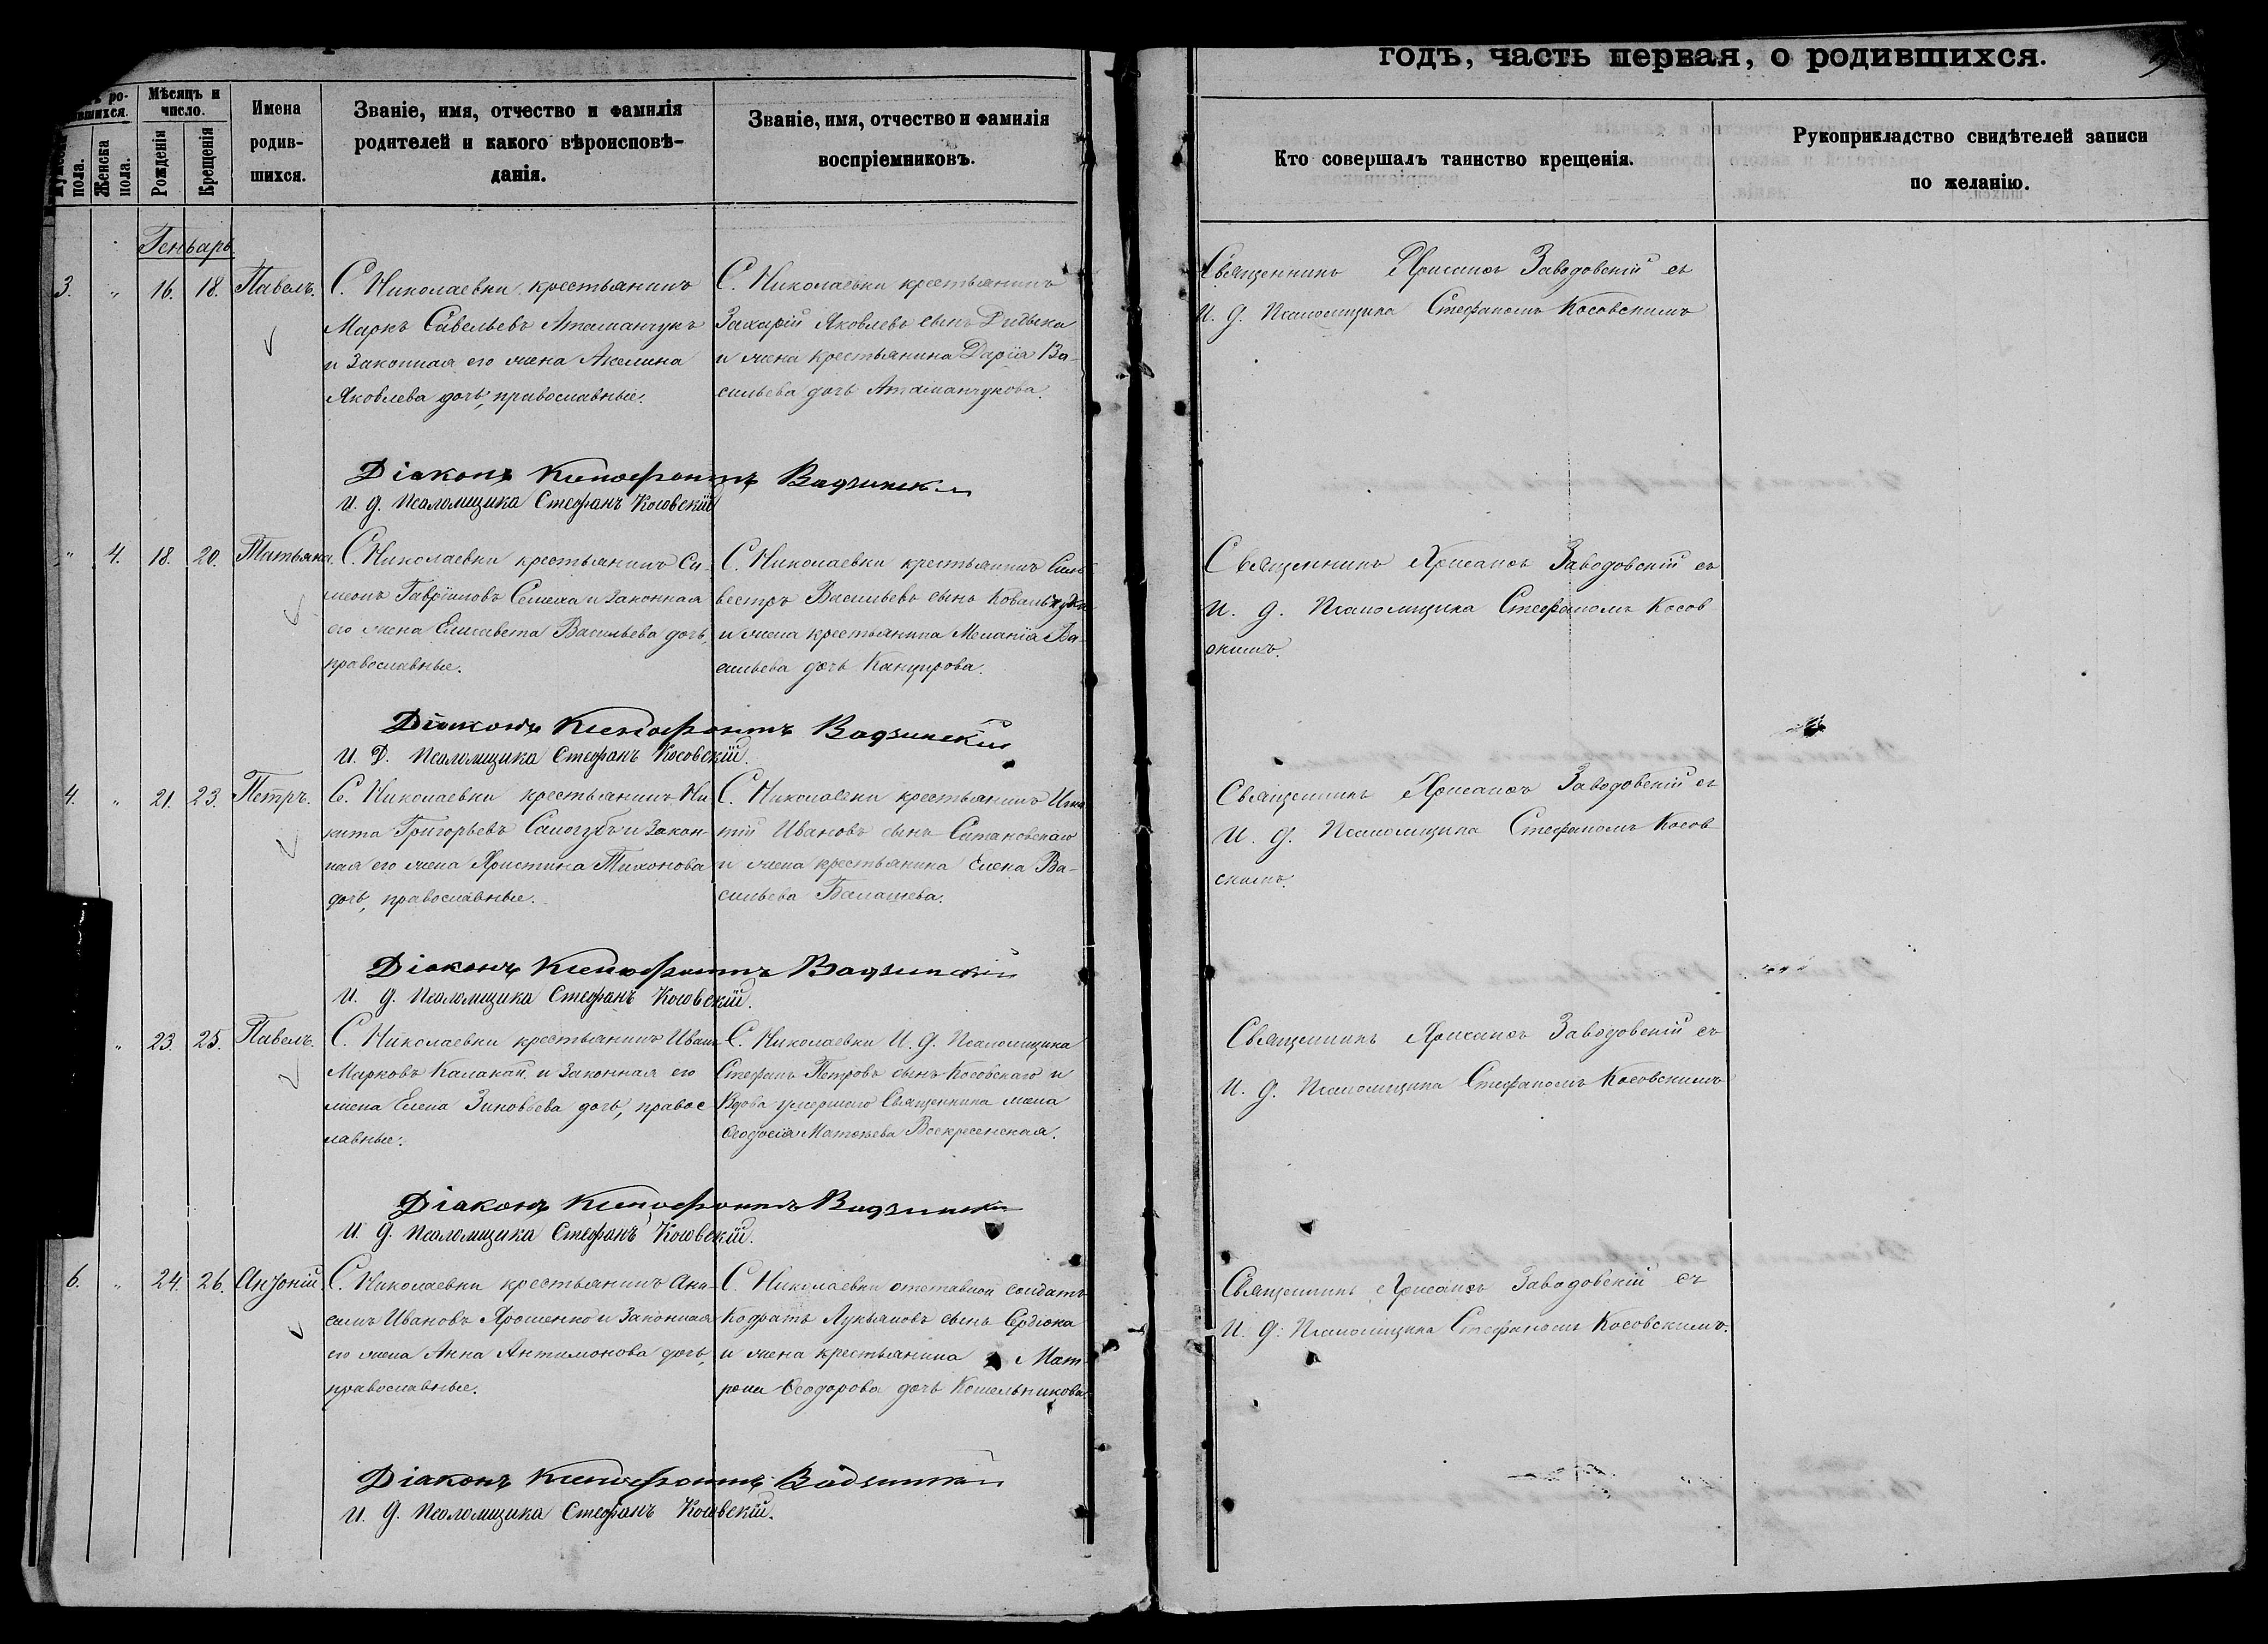 годъ, часть первая, о родившихся.
Мѣсяцъ и число.
Рожденія
Крещенія
Женска пола.
пола.
Имена родив- шихся.
Званіе, имя, отчество и фамилія
родителей и какого вѣроисповѣ-
данія.
Званіе, имя, отчество и фамилія
воспріемниковъ.
Кто совершалъ таинство крещенія.
Рукоприкладство свидѣтелей записи
по желанію.
Геньварь
3. " 16. 18. Павелъ.
С. Николаевки крестьянинъ
Маркъ Савельевъ Атаманчукъ
и законная его жена Акелина
Яковлева дочь, православные.
С. Николаевки крестьянинъ
Захарій Яковлевъ сынъ
и жена крестьянина Дарія Ва-
сильева дочь Атаманчукова.
Священникъ Хрисанѳъ Заводовскій съ
и. д. Псаломщика Стефаномъ Косовскимъ
Діаконъ Ксенофонтъ
И. д. Псаломщика Стефанъ Косовскій
" 4. 18. 20. Татьяна.
С. Николаевки крестьянинъ Си-
меонъ Гавріиловъ и законная
его жена Елисавета Васильева дочь,
православные.
С. Николаевки крестьянинъ Силь
вестръ Васильевъ сынъ
и жена крестьянина Меланія Ва-
сильева дочь Канцирова.
Священникъ Хрисанѳъ Заводовскій съ
И. д. Псаломщика Стефаномъ Косов
скимъ.
Діаконъ Ксенофонтъ Вадзинскій
И. Д. Псаломщика Стефанъ Косовскій.
4. " 21. 23. Петръ.
С. Николаевки крестьянинъ Ни
кита Григорьевъ Самогубъ и закон-
ная его жена Христина Тихонова
дочь, православные.
С. Николаевки крестьянинъ Игна
тій Ивановъ сынъ Сатановскаго
и жена крестьянина Елена Ва-
сильева Балашева.
Священникъ Хрисанѳъ Заводовскій съ
И. д. Псаломщика Стефаномъ Косов
скимъ.
Діаконъ Ксенофонтъ Вадзинскій
И. д. Псаломщика Стефанъ Косовскій.
" 23. 25. Павелъ.
С. Николаевки крестьянинъ Иванъ
Марковъ Калакай и законная его
жена Елена Зиновьева дочь, правос
лавные.
С. Николаевки И. д. Псаломщика
Стефанъ Петровъ сынъ Косовскаго и
Вдова умершаго Священника жена
Ѳеодосія Матѳѣева Воскресенская.
Священникъ Хрисанѳъ Заводовскій съ
И. д. Псаломщика Стефаномъ Косовскимъ
Діаконъ Ксенофонтъ Вадзински
И. д. Псаломщика Стефанъ Косовскій.
6. " 24. 26. Антоній
С. Николаевки крестьянинъ Ани-
симъ Ивановъ Ярошенко и законная
его жена Анна Антимонова дочь,
православные.
С. Николаевки отставной солдатъ
Кодратъ Лукьяновъ сынъ Сердюка
и жена крестьянина Мат
рона Ѳеодорова дочь Кошельникова.
Священникъ Хрисанѳъ Заводовскій съ
И. д. Псаломщика Стефаномъ Косовскимъ.
Діаконъ Ксенофонтъ Вадзинскій
И. д. Псаломщика Стефанъ Косовскій.